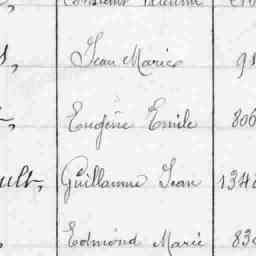 Jean Marie 9
Eugène Emile 806
ult, Guillaume Jean 134
Edmond Marie 83